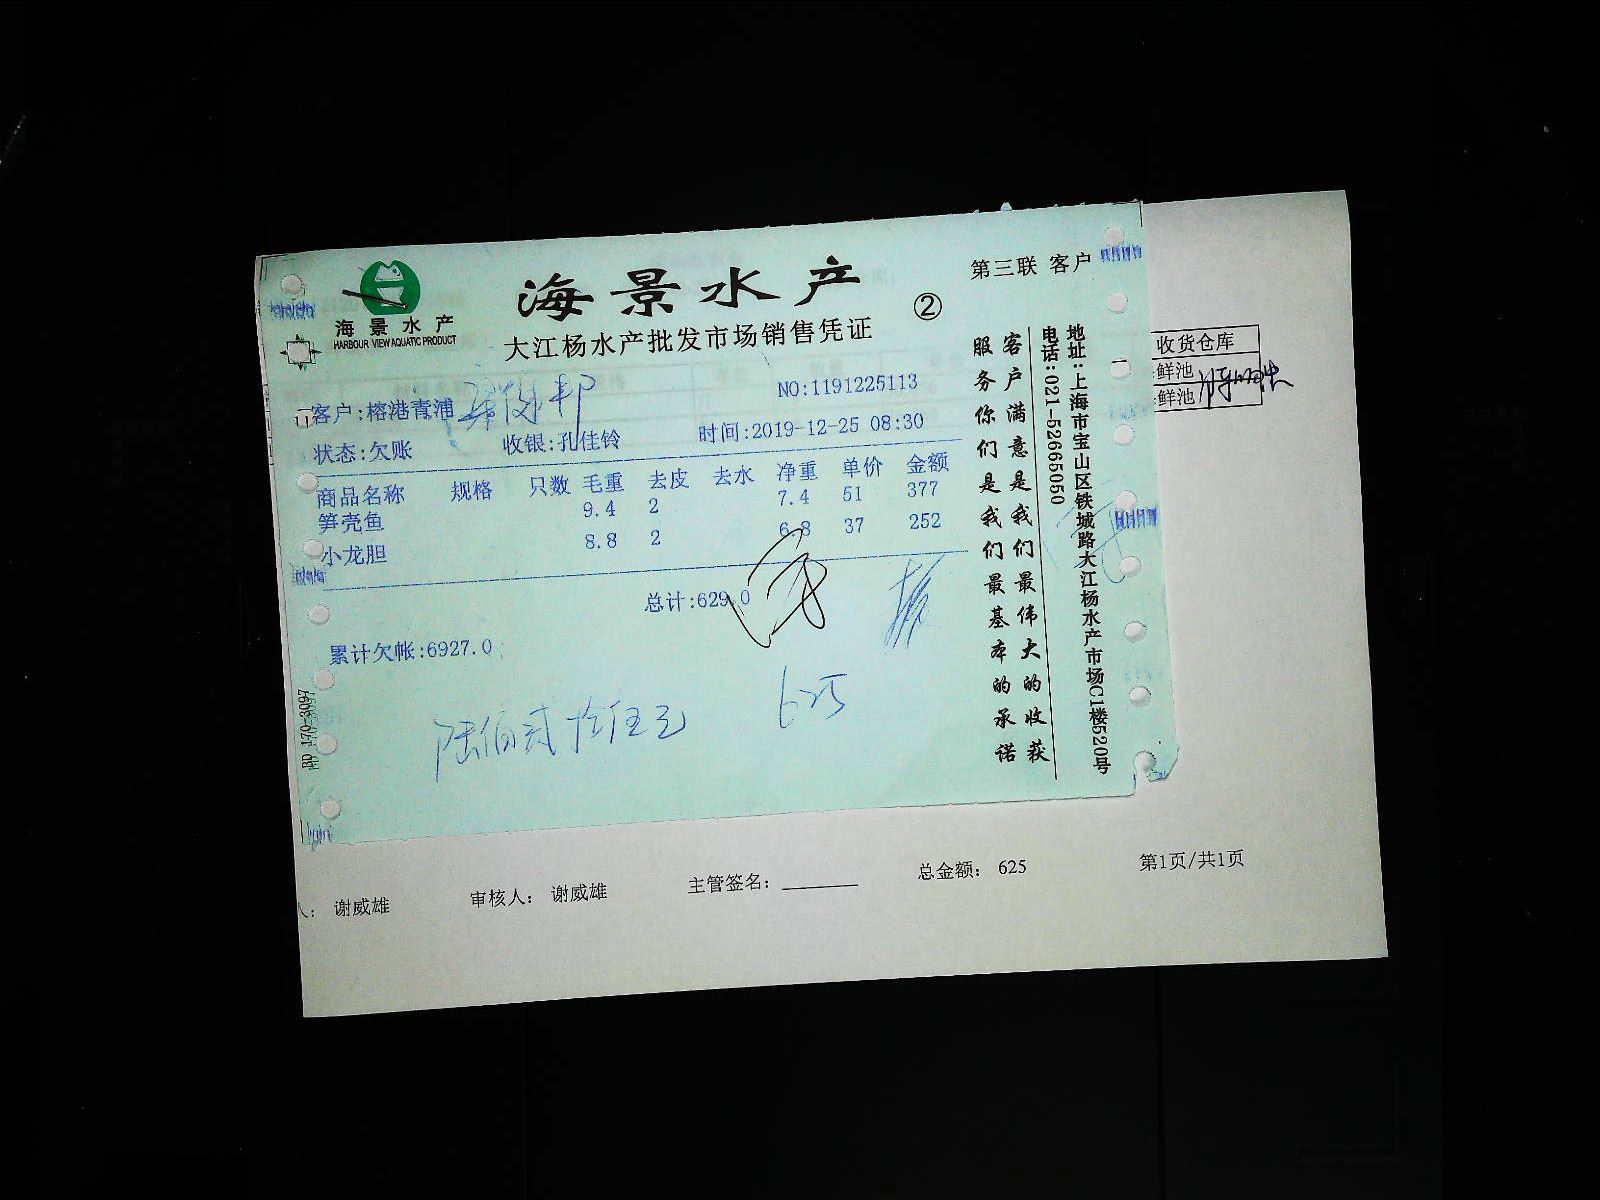 海景水产
HARBOUR VIEW AQUATIC PRODUCT
海景水产
②
第三联 客户
大江杨水产批发市场销售凭证
NO:1191225113
客户:榕港青浦
状态:欠账 收银:孔佳铃 时间:2019-12-25 08:30
商品名称 规格 只数 毛重 去皮 去水 净重 单价 金额
笋壳鱼 9.4 2 7.4 51 377
小龙胆 8.8 2 6.8 37 252
总计:629.0
累计欠帐:6927.0
陆佰贰拾伍元 625
客户满意是我们最伟大的收获
服务你们是我们最基本的承诺
地址:上海市宝山区铁城路大江杨水产市场C1楼520号
电话:021-52665050
BD 170-3097
收货仓库
鲜池
鲜池
谢威雄 审核人: 谢威雄 主管签名: 总金额: 625 第1页/共1页